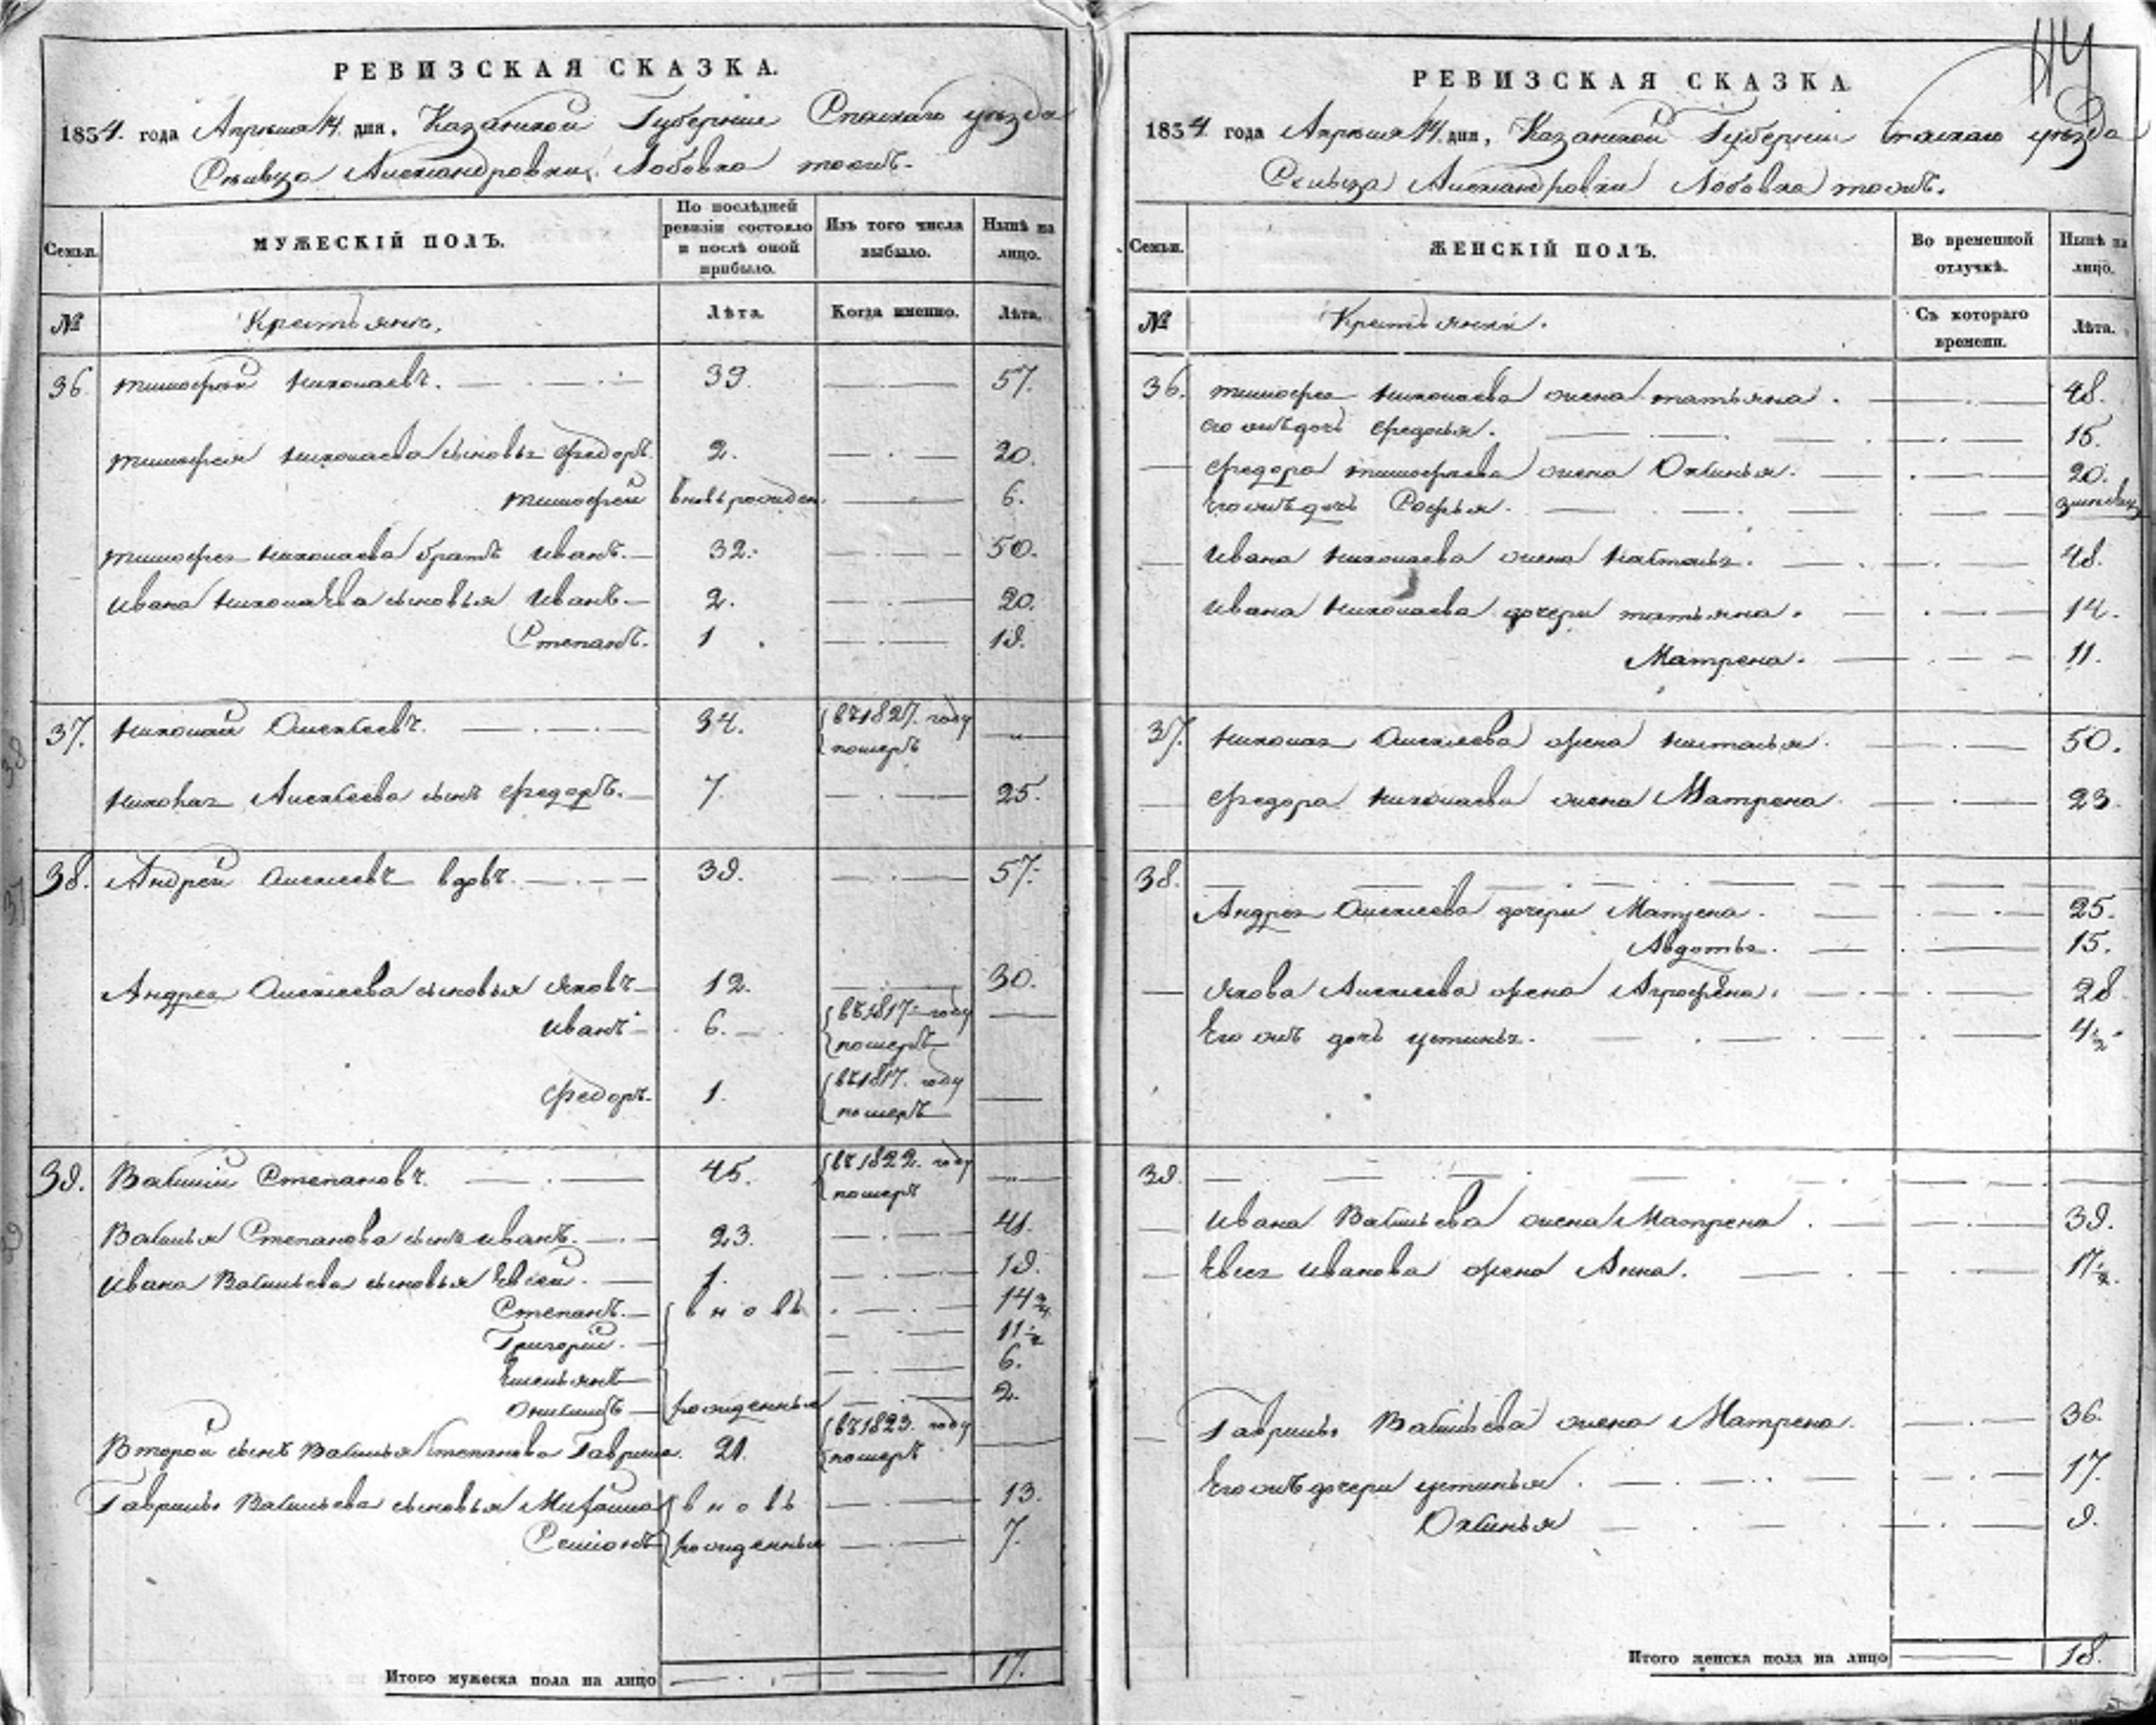 РЕВИЗСКАЯ СКАЗКА.
1834. года Апреля 14. дня, Казанской Губернии Спаскаго уезда
Сельца Александровки, Лобовка тожъ.
Семьи.
МУЖЕСКІЙ ПОЛЪ.
По послѣдней ревизіи состояло и послѣ оной прибыло.
Изъ того числа выбыло.
Нынѣ на лицо.
№
Крестьяне.
Лѣта.
Когда именно.
Лѣта.
36. Тимофей Николаевъ. 39. 57.
Тимофея Николаева сыновья Федоръ. 2. 20.
Тимофей вновь рожден. 6.
Тимофея Николаева братъ Иванъ. 32. 50.
Ивана Николаева сыновья Иванъ. 2. 20.
Степанъ. 1 19.
37. Николай Алексеевъ. 34. въ 1827. году померъ
Николая Алексеева сынъ Федоръ. 7. 25.
38. Андрей Алексеевъ вдовъ. 39. 57.
Андрея Алексеева сыновья Яковъ 12. 30.
Иванъ 6. въ 1817 году померъ
Федоръ. 1. въ 1817. году померъ
39. Василий Степановъ. 45. въ 1822. году померъ
Василья Степанова сынъ Иванъ. 23. 41.
Ивана Васильева сыновья Евсей. 1. 19.
Степанъ. вновь 14 3/4
Григорий. 11 1/2
Емельянъ 6.
рожденныя 2.
Второй сынъ Василья Степанова Гаврила. 21. въ 1823. году померъ
Гаврилы Васильева сыновья Михайла вновь 13.
Семионъ рожденныя 7.
Итого мужеска пола на лицо 17.
114
РЕВИЗСКАЯ СКАЗКА
1834 года Апреля 14. дня, Казанской Губернии Спаскаго уезда
Сельца Александровки Лобовка тожъ.
Семьи.
ЖЕНСКІЙ ПОЛЪ.
Во временной отлучкѣ.
Нынѣ на лицо.
№
Крестьянки.
Съ котораго времени.
Лѣта.
36. Тимофея Николаева жена Татьяна. 48.
его жъ дочь Федосья. 15.
Федора Тимофеева жена Оксинья. 20.
Его жъ дочь Софья.
Ивана Николаева жена Настасья. 48.
Ивана Николаева дочери Татьяна. 14.
Матрена. 11.
37. Николая Алексеева жена Настасья. 50.
Федора Николаева жена Матрена 23.
38.
Андрея Алексеева дочери Матрена. 25.
Авдотья. 15.
Якова Алексеева жена Аграфена. 28
Его жъ дочь Устинья. 4 1/2
39.
Ивана Васильева жена Матрена. 39.
Евсея Иванова жена Анна. 17 1/2
Гаврилы Васильева жена Матрена. 36.
Его жъ дочери Устинья. 17.
Оксинья 9.
Итого женска пола на лицо 18.